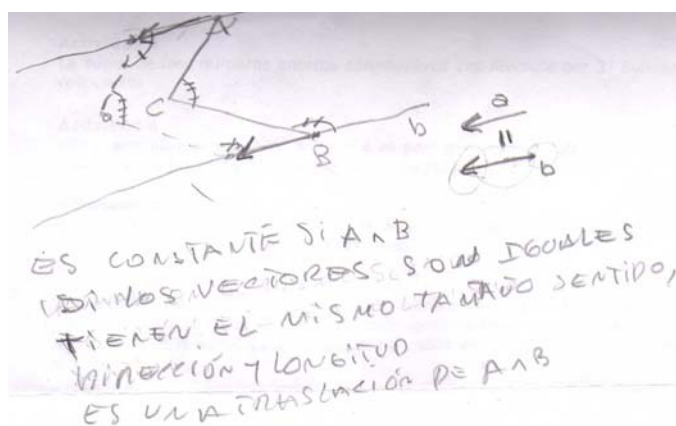 A
C
B
b
a
=
b
ES CONSTANTE SI A ∧ B
SI LOS VECTORES SON IGUALES
TIENEN EL MISMO TAMAÑO SENTIDO,
DIRECCIÓN Y LONGITUD
ES UNA TRASLACIÓN DE A ∧ B